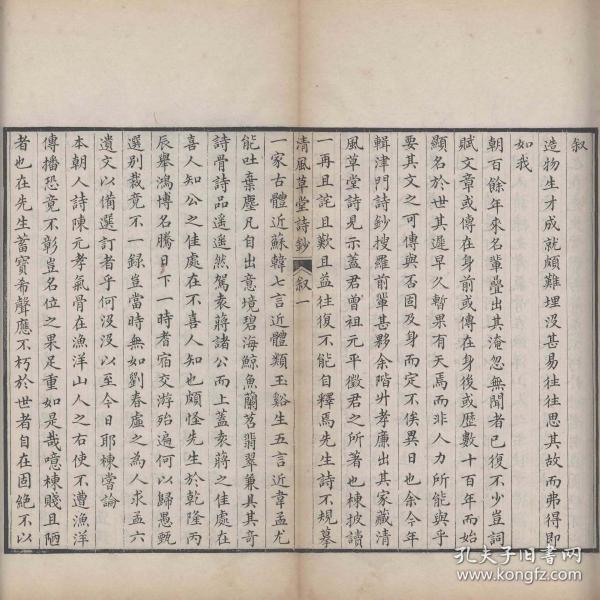 叙
造物生才成就頗難埋沒甚易往往思其故而弗得即
如我
朝百餘年來名輩疊出其淹忽無聞者已復不少豈詞
賦文章或傳在身前或傳在身後或歷數十百年而始
顯名於世其遲早久暫果有天焉而非人力所能與乎
要其文之可傳與否固及身而定不俟異日也余今年
輯津門詩鈔搜羅前輩甚夥余階升孝廉出其家藏清
風草堂詩見示蓋君曾祖元平徵君之所著也棟披讀
一再且詫且歎且益往復不能自釋焉先生詩不規摹
清風草堂詩鈔
叙
一
一家古體近蘇韓七言近體類玉谿生五言近韋孟尤
能吐棄塵凡自出意境碧海鯨魚蘭苕翡翠兼具其奇
詩骨詩品遥遥然駕袁蔣諸公而上蓋袁蔣之佳處在
喜人知公之佳處在不喜人知也頗怪先生於乾隆丙
辰舉鴻博名騰日下一時耆宿交游殆遍何以歸愚甄
選別裁竟不一錄豈當時無如劉春虛之為人求孟六
遺文以備選訂者乎何沒沒以至今日耶棟嘗論
本朝人詩陳元孝氣骨在漁洋山人之右使不遭漁洋
傳播恐竟不彰豈名位之果足重如是哉噫棟賤且陋
者也在先生蓄寳希聲應不朽於世者自在固絕不以
孔夫子旧書网
www.kongfz.com